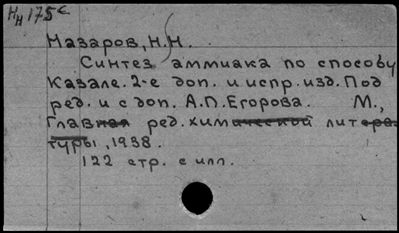 Нн 175с
Назаров, Н.Н.
Синтез аммиака по способу
Казале. 2-е доп. и испр. изд. Под
ред. и с доп. А.П. Егорова. М.,
Главная ред. химической литера-
туры, 1938.
122 стр. с илл.